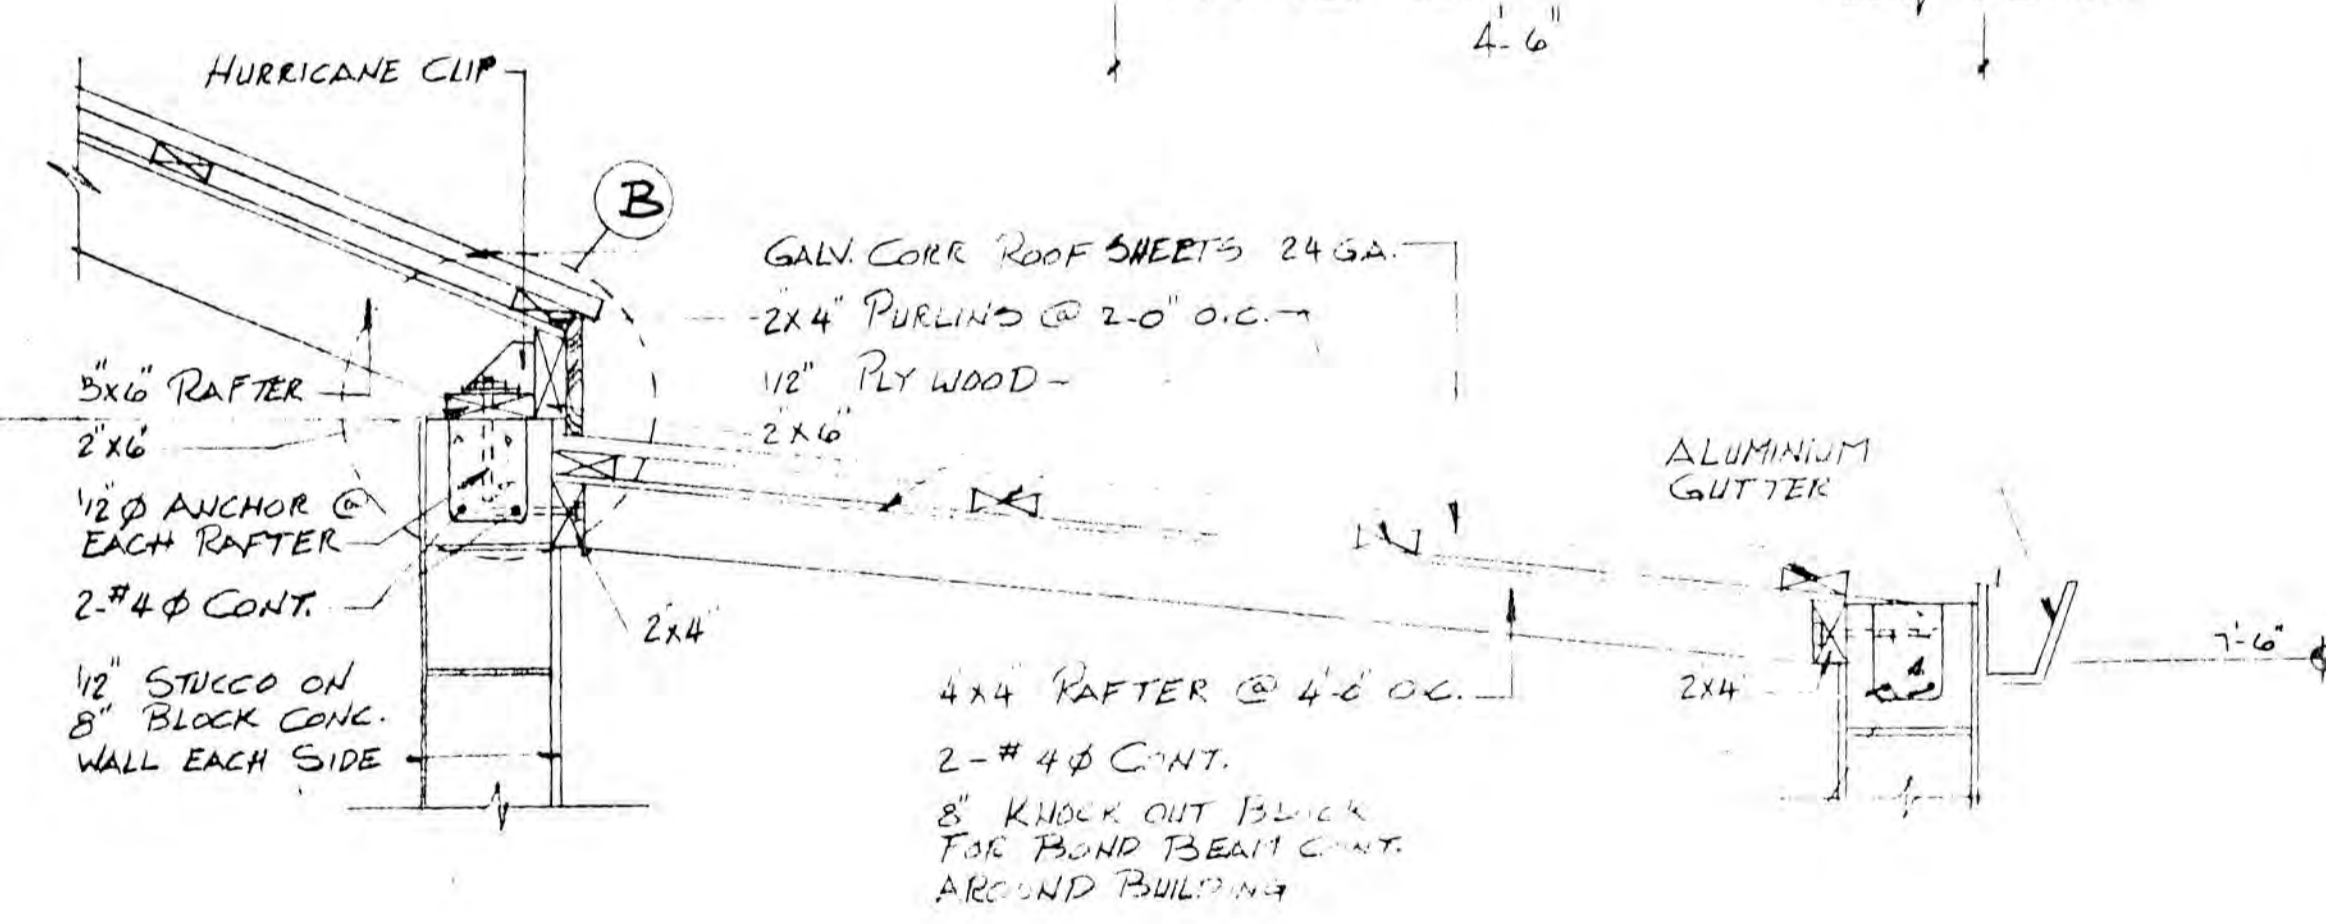 4'-6"
HURRICANE CLIP
B
GALV. CORR ROOF SHEETS 24 GA.
2"x4" PURLINS @ 2-0" O.C.
1/2" PLYWOOD
2"x6"
3"x6" RAFTER
2"x6"
1/2" Ø ANCHOR @
EACH RAFTER
2-#4 Ø CONT.
1/2" STUCCO ON
8" BLOCK CONC.
WALL EACH SIDE
2"x4"
ALUMINIUM
GUTTER
4"x4" RAFTER @ 4'-6" O.C.
2-#4 Ø CONT.
8" KNOCK OUT BLOCK
FOR BOND BEAM CONT.
AROUND BUILDING
2x4
7'-6"